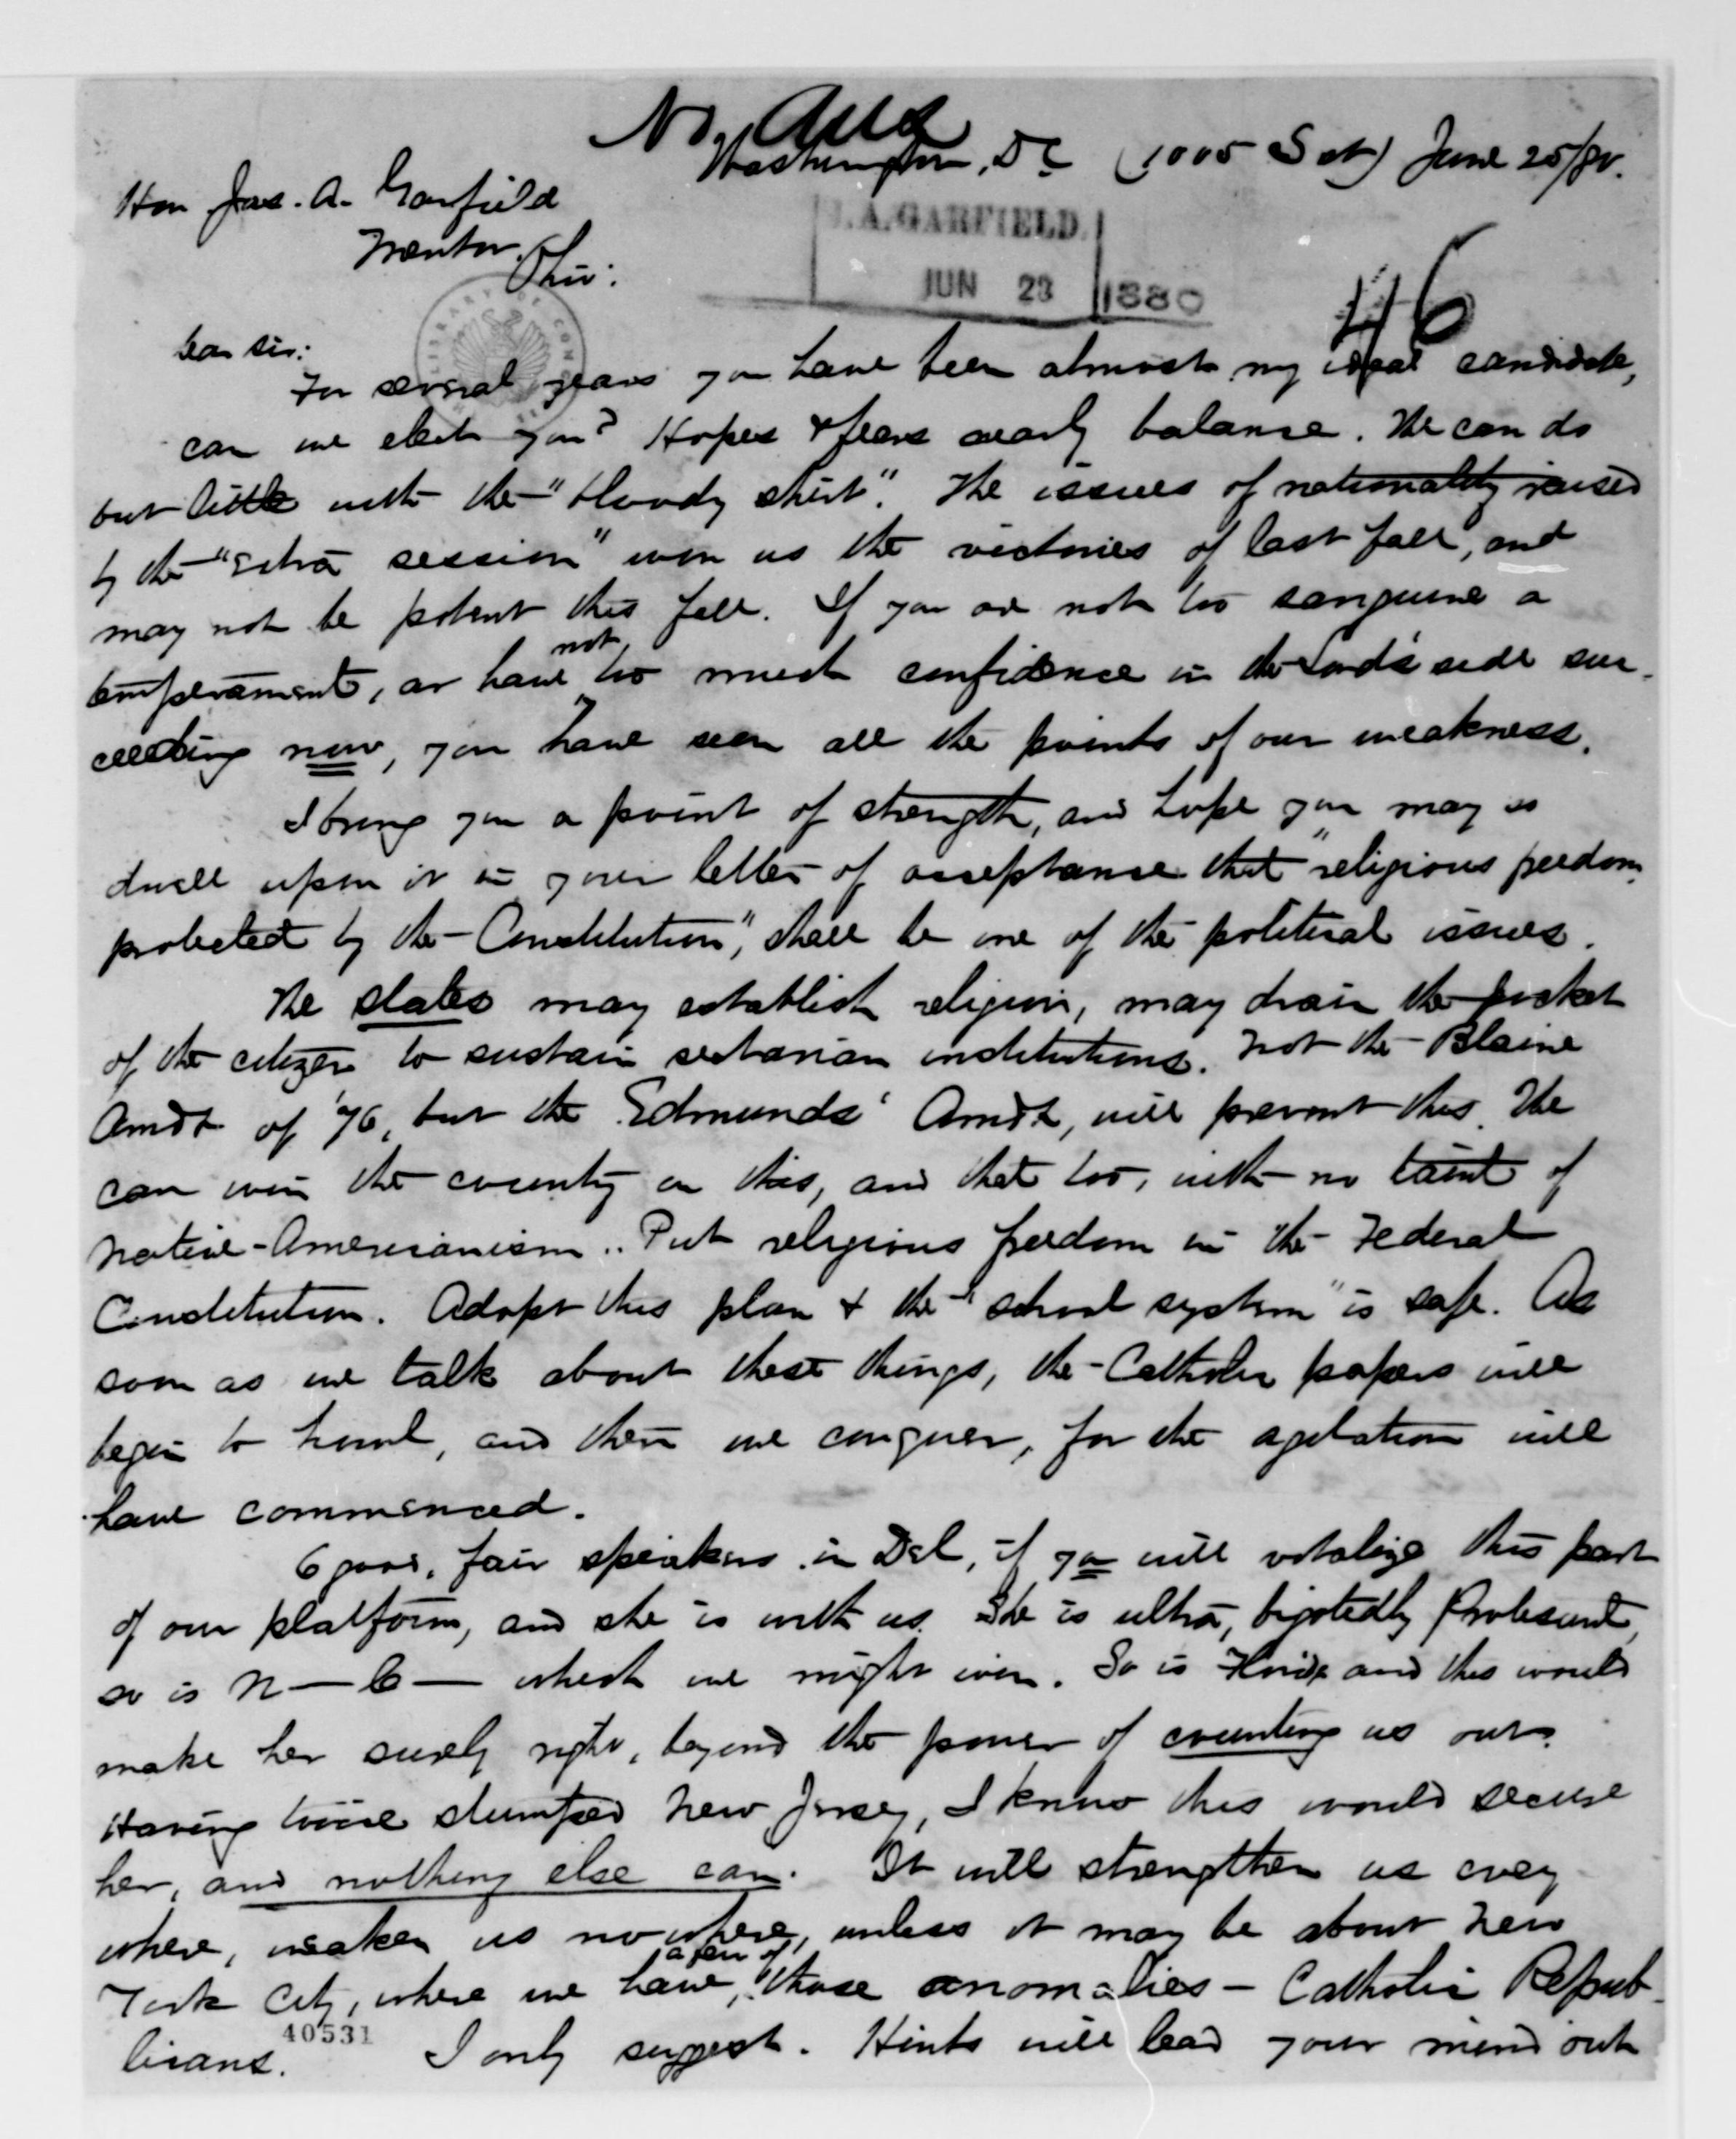 No Ans
Washington, D C (1005 S st) June 25/80.
Hon Jas. A. Garfield
Mentor,
Ohio:
J.A. GARFIELD.
JUN 23 1880
46
Dear sir:
For several years you have been almost my ideal candidate,
can we elect you? Hopes & fears nearly balance. We can do
but little with the "bloody shirt". The issues of nationality raised
by the "extra session" won us the victories of last fall, and
may not be potent this fall. If you are not too sanguine a
temperament, or have not too much confidence in the Lord's side suc-
ceeding now, you have seen all the points of our weakness.
I bring you a point of strength, and hope you may so
dwell upon it in your letter of acceptance that "religious freedom,
protected by the Constitution", shall be one of the political issues.
The states may establish religion, may drain the pocket
of the citizen to sustain sectarian institutions. Not the Blaine
Amdt of '76, but the Edmunds' Amdt, will prevent this. We
can win the country on this, and that too, with no taint of
Native-Americanism. Put religious freedom in the Federal
Constitution. Adopt this plan & the "school system" is safe. As
soon as we talk about these things, the Catholic papers will
begin to howl, and then we conquer, for the agitation will
have commenced.
6 good, fair speakers in Del, if you will vitalize this part
of our platform, and she is with us. She is ultra, bigotedly Protesant,
so is N — C — which we might win. So is Florida and this would
make her surely right, beyond the power of counting us out.
Having twice stumped New Jersey, I know this would secure
her, and nothing else can. It will strengthen us every
where, weaken us nowhere, unless it may be about New
York City, where we have a few of those anomalies - Catholic Repub-
licans. I only suggest. Hints will lead your mind out
40531